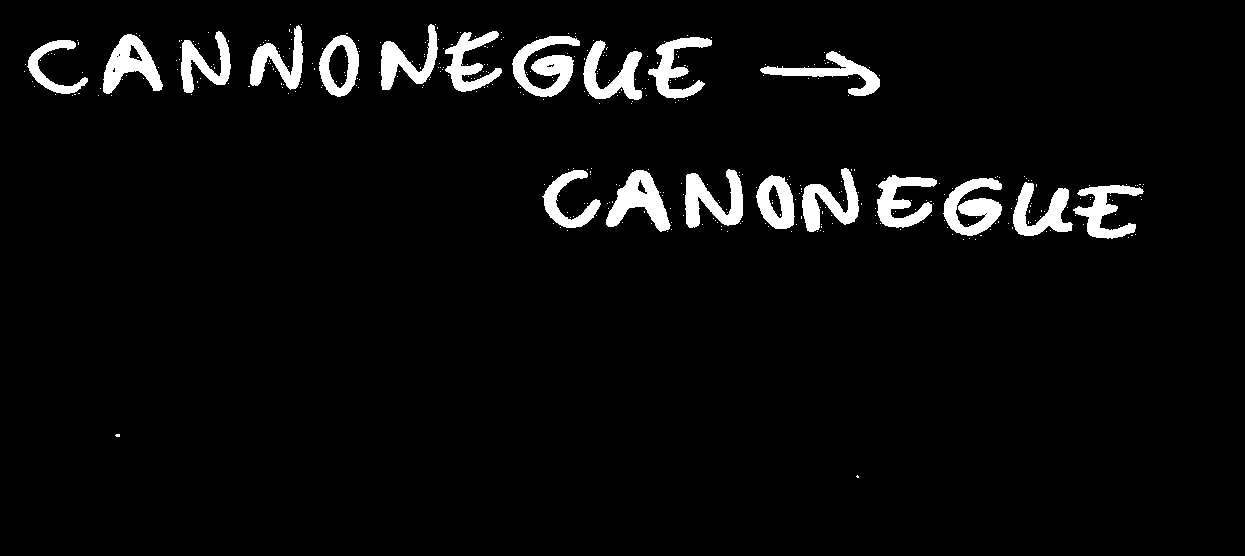 CANNONEGUE →
CANONEGUE